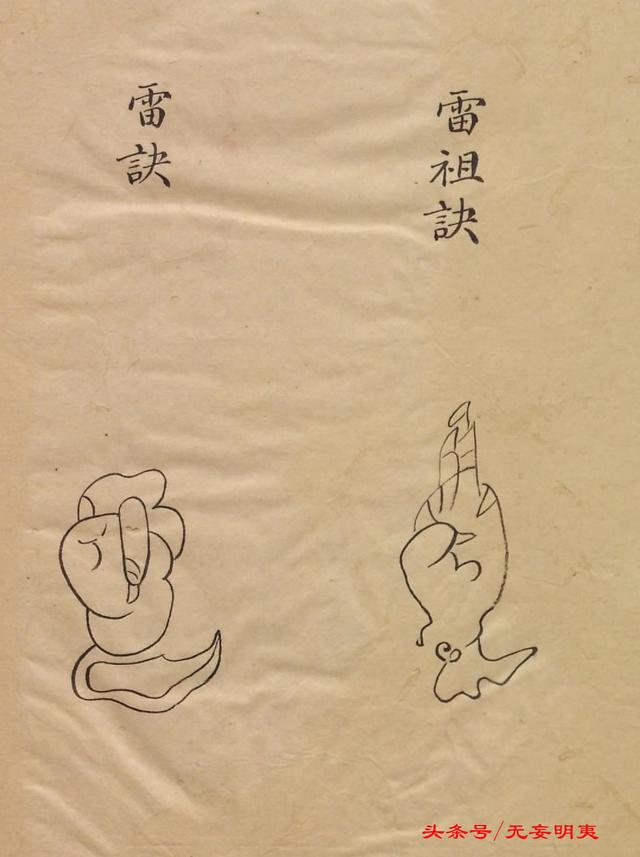 雷祖訣
雷訣
头条号/无妄明夷